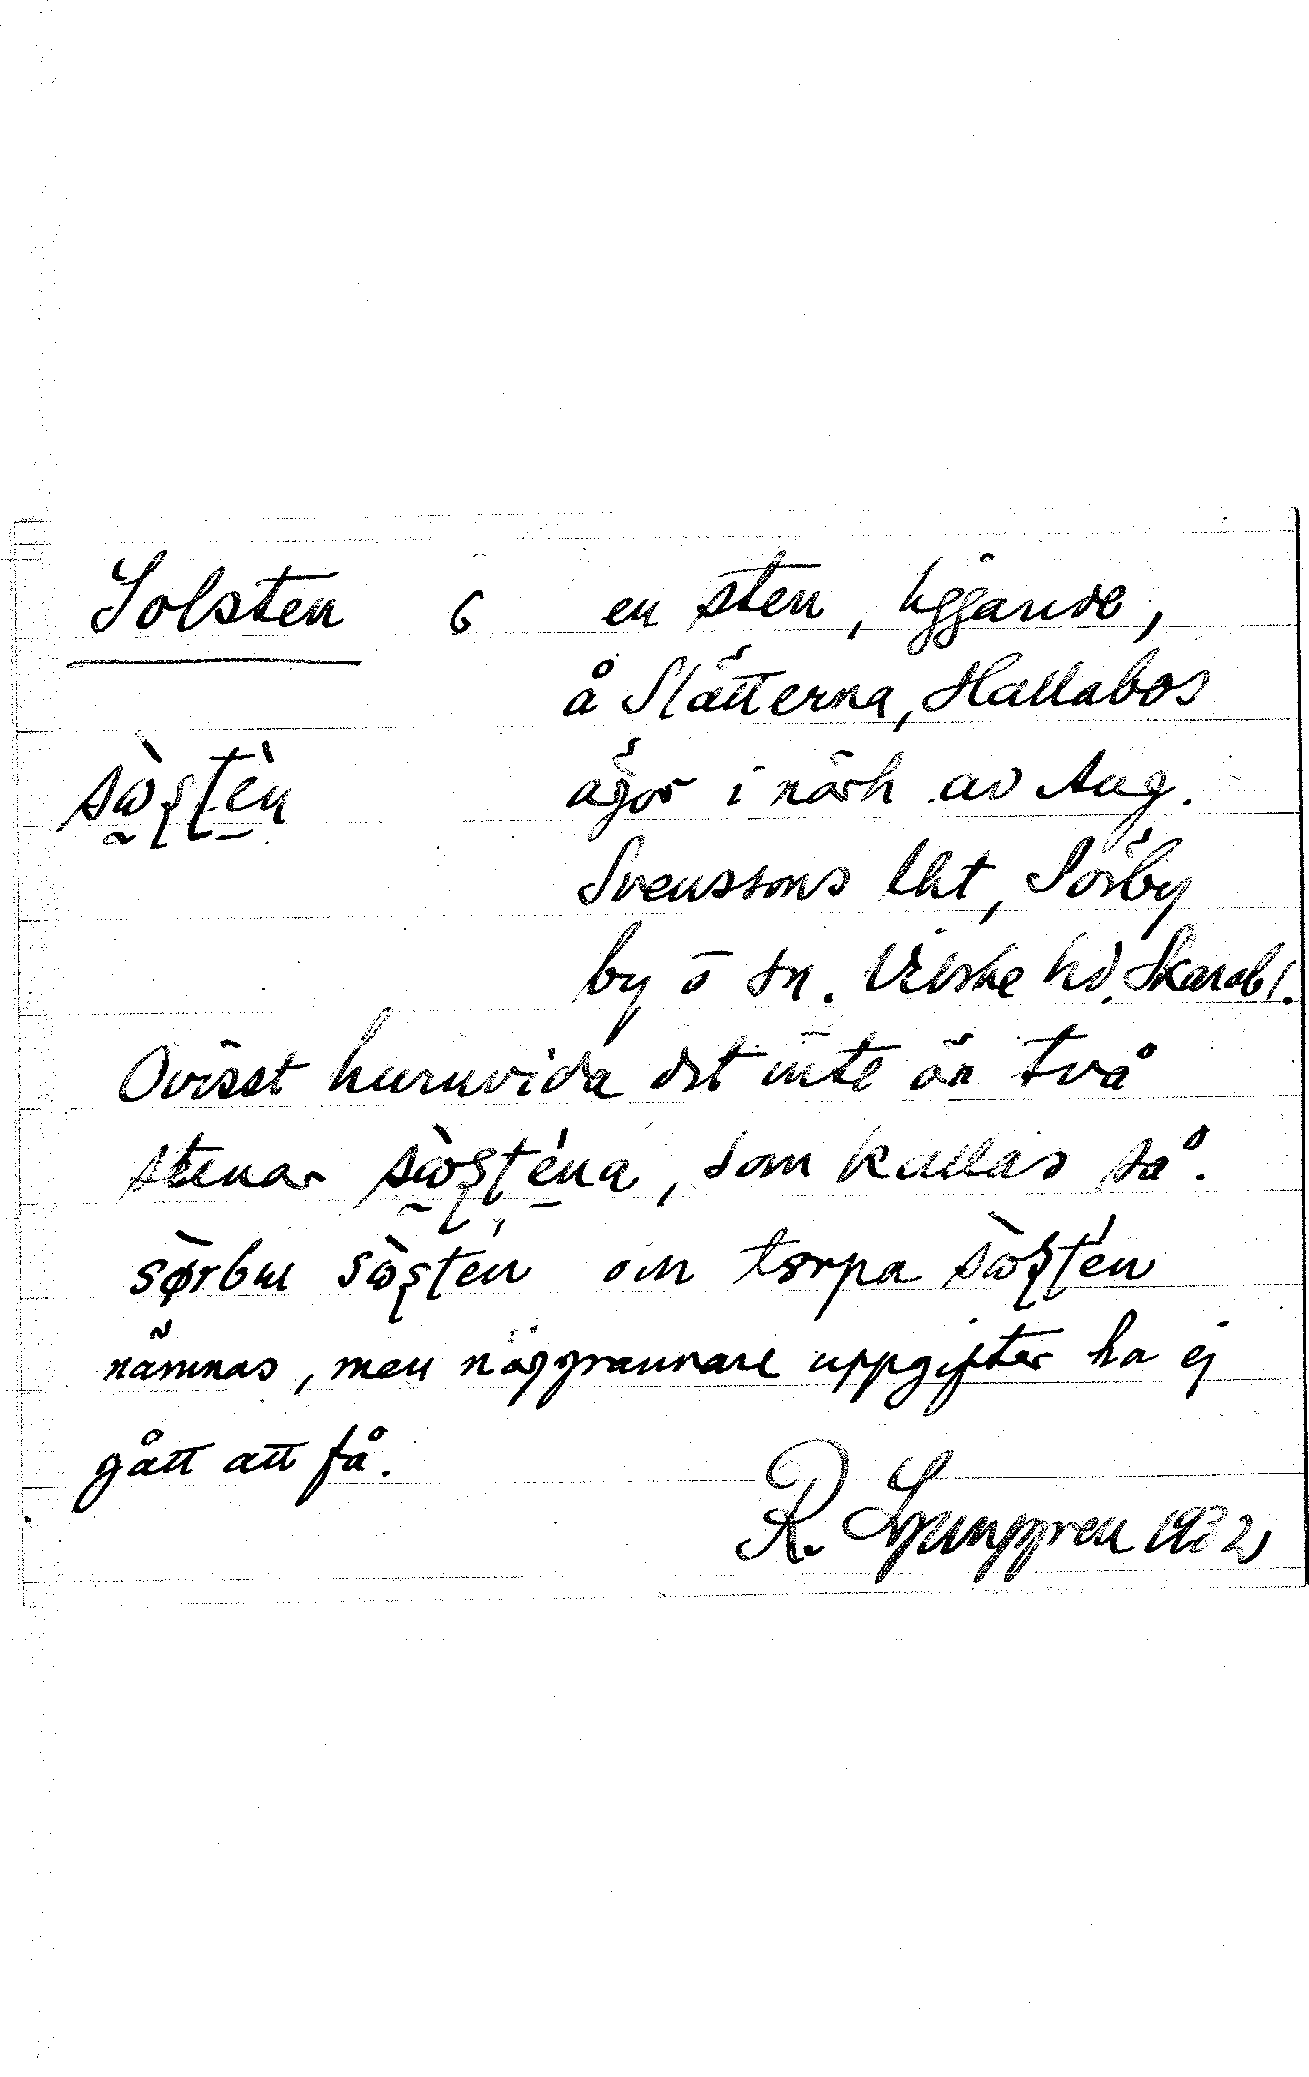 Solsten 6 en sten, liggande,
å Slätterna, Hallabos
sὼʂʈèn ägor i närh av Aug.
Svenssons lht, Sörby
by o sn. Vilske hd. Skarabl.
Ovisst huruvida det inte är två
stenar sὼʂʈéna, som kallas så.
sørbu sὼʂʈén om torpa sὼʂʈén
nämnas, men noggrannare uppgifter ha ej
gått att få.
R. Ljunggren 1932